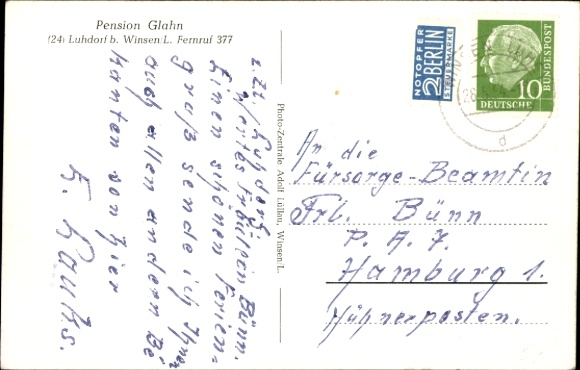 Pension Glahn
(24) Luhdorf b. Winsen/L. Fernruf 377
z. Zt. Luhdorf.
Wertes Fräulein Bünn.
Einen schönen Ferien-
gruß sende ich Ihnen
auch allen andern Be
kanten von hier
Photo-Zentrale Adolf Lüllau, Winsen/L.
NOTOPFER
2 BERLIN
STEUERMARKE
10
DEUTSCHE
BUNDESPOST
d
An die
Fürsorge-Beamtin
Frl. Bünn
P. A. 7.
Hamburg 1.
Hühnerposten.